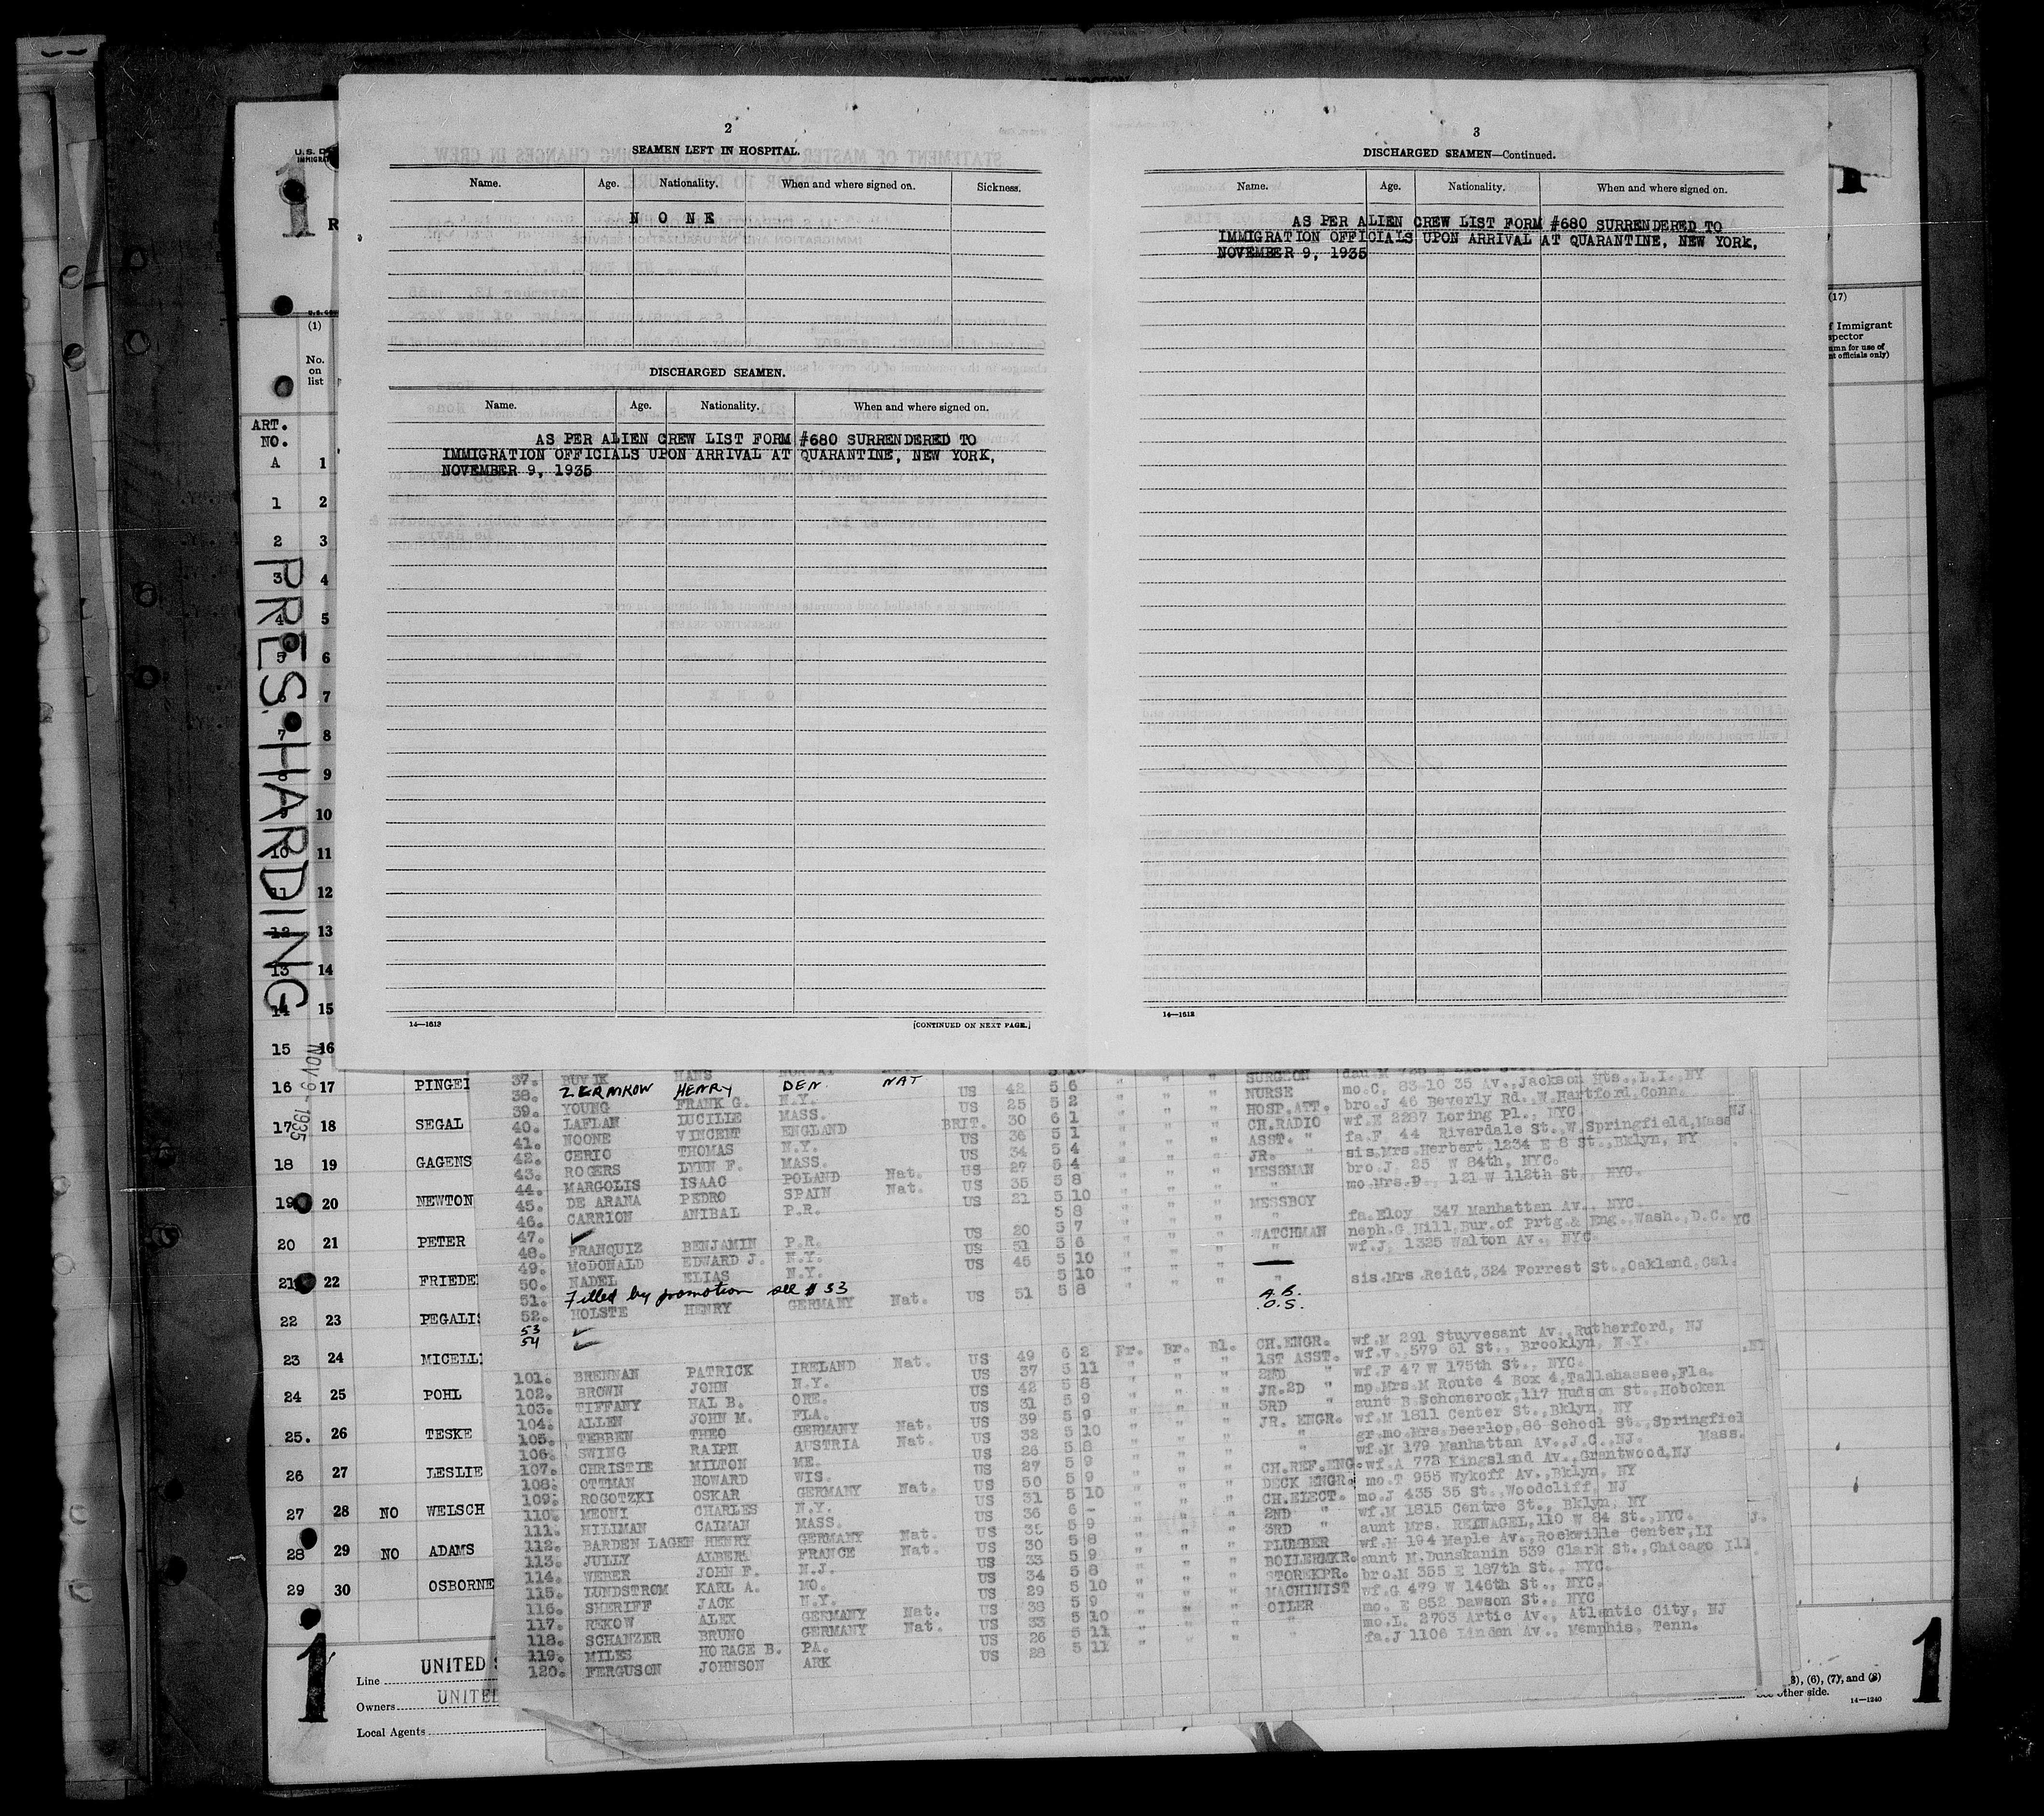 2
SEAMEN LEFT IN HOSPITAL.
Name. Age. Nationality. When and where signed on. Sickness.
N O N E
DISCHARGED SEAMEN.
Name. Age. Nationality. When and where signed on.
AS PER ALIEN CREW LIST FORM #680 SURRENDERED TO
IMMIGRATION OFFICIALS UPON ARRIVAL AT QUARANTINE, NEW YORK,
NOVEMBER 9, 1935
14—1613
[CONTINUED ON NEXT PAGE.]
3
DISCHARGED SEAMEN—Continued.
Name. Age. Nationality. When and where signed on.
AS PER ALIEN CREW LIST FORM #680 SURRENDERED TO
IMMIGRATION OFFICIALS UPON ARRIVAL AT QUARANTINE, NEW YORK,
NOVEMBER 9, 1935
14—1613
(1)
No.
on
list
ART.
NO.
A 1
1 2
2 3
3 4
4 5
5 6
6 7
7 8
8 9
9 10
10 11
11 12
12 13
13 14
14 15
15 16
PRES. HARDING
NOV 9 - 1935
(17)
16 17 PINGEI
17 18 SEGAL
18 19 GAGENS
19 20 NEWTON
20 21 PETER
21 22 FRIEDE
22 23 PEGALIS
23 24 MICELLI
24 25 POHL
25. 26 TESKE
26 27 LESLIE
27 28 NO WELSCH
28 29 NO ADAMS
29 30 OSBORNE
37. BUVIK HANS NORWAY
38. ZERMKOW HENRY DEN. NAT
39. YOUNG FRANK G. N.Y.
40. LAFLAN LUCILLE MASS.
41. NOONE VINCENT ENGLAND
42. CERIO THOMAS N.Y.
43. ROGERS LYNN F. MASS.
44. MARGOLIS ISAAC POLAND Nat.
45. DE ARANA PEDRO SPAIN Nat.
46. CARRION ANIBAL P.R.
47.
48. FRANQUIZ BENJAMIN P.R.
49. McDONALD EDWARD J. N.Y.
50. NADEL ELIAS N.Y.
51. Filled by promotion see #33
52. HOLSTE HENRY GERMANY Nat.
53
54
US 42 5 6
US 25 5 2
BRIT. 30 6 1
US 36 5 1
US 34 5 4
US 27 5 4
US 35 5 8
US 21 5 10
5 8
US 20 5 7
US 51 5 6
US 45 5 10
5 10
US 51 5 8
SURGEON
NURSE mo.C. 83-10 35 Av., Jackson Hts., L.I., NY
HOSP.ATT. bro.J 46 Beverly Rd., W.Hartford, Conn.
CH.RADIO wf.E 2287 Loring Pl., NYC. NJ
ASST. " fa.F. 44 Riverdale St., W.Springfield, Mass
JR. " sis.Mrs.Herbert, 1234 E 8 St., Bklyn, NY
MESSMAN bro.J. 25 W 84th, NYC.
" mo.Mrs.D. 121 W 112th St., NYC.
MESSBOY
fa.Eloy 347 Manhattan Av., NYC.
WATCHMAN neph.G Mill, Bur.of Prtg.& Eng., Wash., D.C.
" wf.J. 1325 Walton Av., NYC.
" sis.Mrs.Reidt, 324 Forrest St., Oakland, Cal.
A.B.
O.S.
101. BRENNAN PATRICK IRELAND Nat. US 49 6 2 Fr. Br. Bl. CH.ENGR. wf.M 291 Stuyvesant Av., Rutherford, NJ
102. BROWN JOHN N.Y. US 37 5 11 " " " 1ST ASST. wf.V., 579 61 St., Brooklyn, N.Y.
103. TIFFANY HAL B. ORE. US 42 5 8 " " " 2ND " wf.F 47 W 175th St., NYC.
104. ALLEN JOHN M. FLA. US 31 5 9 " " " JR.2D " mp.Mrs.M Route 4 Box 4, Tallahassee, Fla.
105. TEBBEN THEO GERMANY Nat. US 39 5 9 " " " 3RD " aunt B.Schonerock, 117 Hudson St., Hoboken
106. SWING RALPH AUSTRIA Nat. US 32 5 10 " " " JR. ENGR. wf.M 1811 Center St., Bklyn, NY
107. CHRISTIE MILTON ME. US 26 5 8 " " " " gr.mo.Mrs.Deerlop, 86 School St., Springfiel Mass.
108. OTTMAN HOWARD WIS. US 27 5 9 " " " " wf.M 179 Manhattan Av., J.C., NJ.
109. ROGOTZKI OSKAR GERMANY Nat. US 50 5 9 " " " CH.REF.ENG. wf.A 772 Kingsland Av., Grantwood, NJ
110. MEONI CHARLES N.Y. US 31 5 10 " " " DECK ENGR. mo.T 955 Wykoff Av., Bklyn, NY
111. HILLMAN CALMAN MASS. US 36 6 - " " " CH.ELECT. mo.J 435 35 St., Woodcliff, NJ
112. BARDEN LAGEN HENRY GERMANY Nat. US 5 9 " " " 2ND " wf.M 1815 Centre St., Bklyn, NY
113. JULLY ALBERT FRANCE Nat. US 30 5 8 " " " 3RD " aunt Mrs. REINAGEL, 110 W 84 St., NYC.
114. WEBER JOHN F. N.J. US 33 5 9 " " " PLUMBER wf.M 194 Maple Av., Rockville Center, LI
115. LUNDSTROM KARL A. MO. US 34 5 8 " " " BOILERMKR. aunt M.Dunskanin 539 Clark St., Chicago Ill
116. SHERIFF JACK N.Y. US 29 5 10 " " " STOREKPR. bro.M 355 E 187th St., NYC.
117. REKOW ALEX GERMANY Nat. US 38 5 9 " " " MACHINIST wf.G 479 W 146th St., NYC.
118. SCHANZER BRUNO GERMANY Nat. US 33 5 10 " " " OILER mo. E 852 Dawson St., NYC
119. MILES HORACE B. PA. US 26 5 11 " " " " mo.L. 2703 Artic Av., Atlantic City, NJ
120. FERGUSON JOHNSON ARK US 28 5 11 " " " " fa.J 1106 Linden Av., Memphis, Tenn.
Line UNITED
Owners UNITED
Local Agents
(6), (7), and (8)
other side.
14—1240
1
1